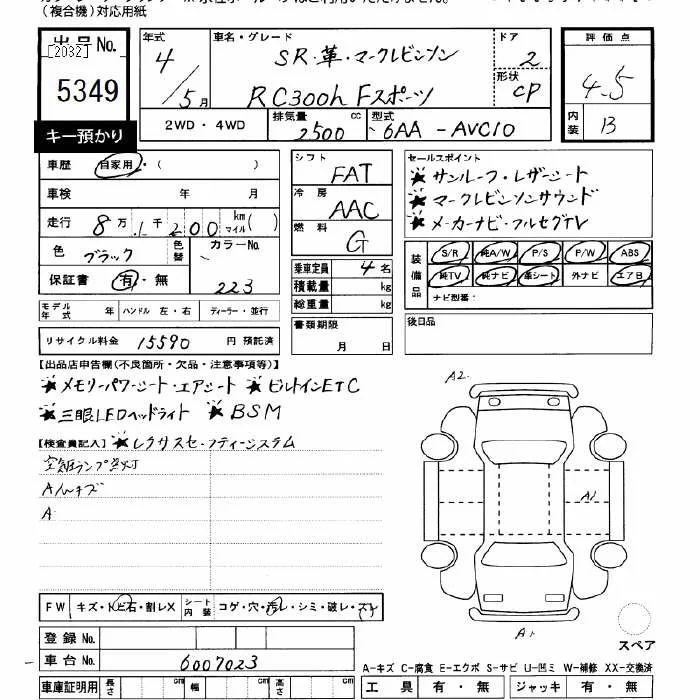 (複合機)対応用紙
出品No.
[2032]
5349
キー預かり
年式 4/5月
車名・グレード
SR・革・マークレビンソン
RC300h Fスポーツ
ドア 2
形状 CP
2WD・4WD
排気量 2500 cc
型式 6AA-AVC10
評価点
4.5
内装 B
車歴 自家用・( )
車検 年 月
走行 8万1千200 km マイル( )
色 ブラック 色替 カラーNo.
保証書 有・無 223
モデル年式 年 ハンドル 左・右 ディーラー・並行
リサイクル料金 15590 円 預託済
シフト FAT
冷房 AAC
燃料 G
乗車定員 4名
積載量 kg
総重量 kg
書類期限
月 日
セールスポイント
★サンルーフ・レザーシート
★マークレビンソンサウンド
★メーカーナビ・フルセグTV
装備品
S/R 純A/W P/S P/W ABS
純TV 純ナビ 革シート 外ナビ エアB
ナビ型番:
後日品
【出品店申告欄(不良箇所・欠品・注意事項等)】
★メモリーパワーシート・エアシート ★ビルトインETC
★三眼LEDヘッドライト ★BSM
【検査員記入】★レクサスセーフティーシステム
空気圧ランプ点灯
A
A2
A1
A1
FW キズ・トビ石・割レX シート内装 コゲ・穴・汚レ・シミ・破レ・スレ
登録No.
車台No. 6007023
車庫証明用 長さ cm 幅 cm 高さ cm
スペア
A-キズ C-腐食 E-エクボ S-サビ U-凹ミ W-補修 XX-交換済
工具 有・無 ジャッキ 有・無